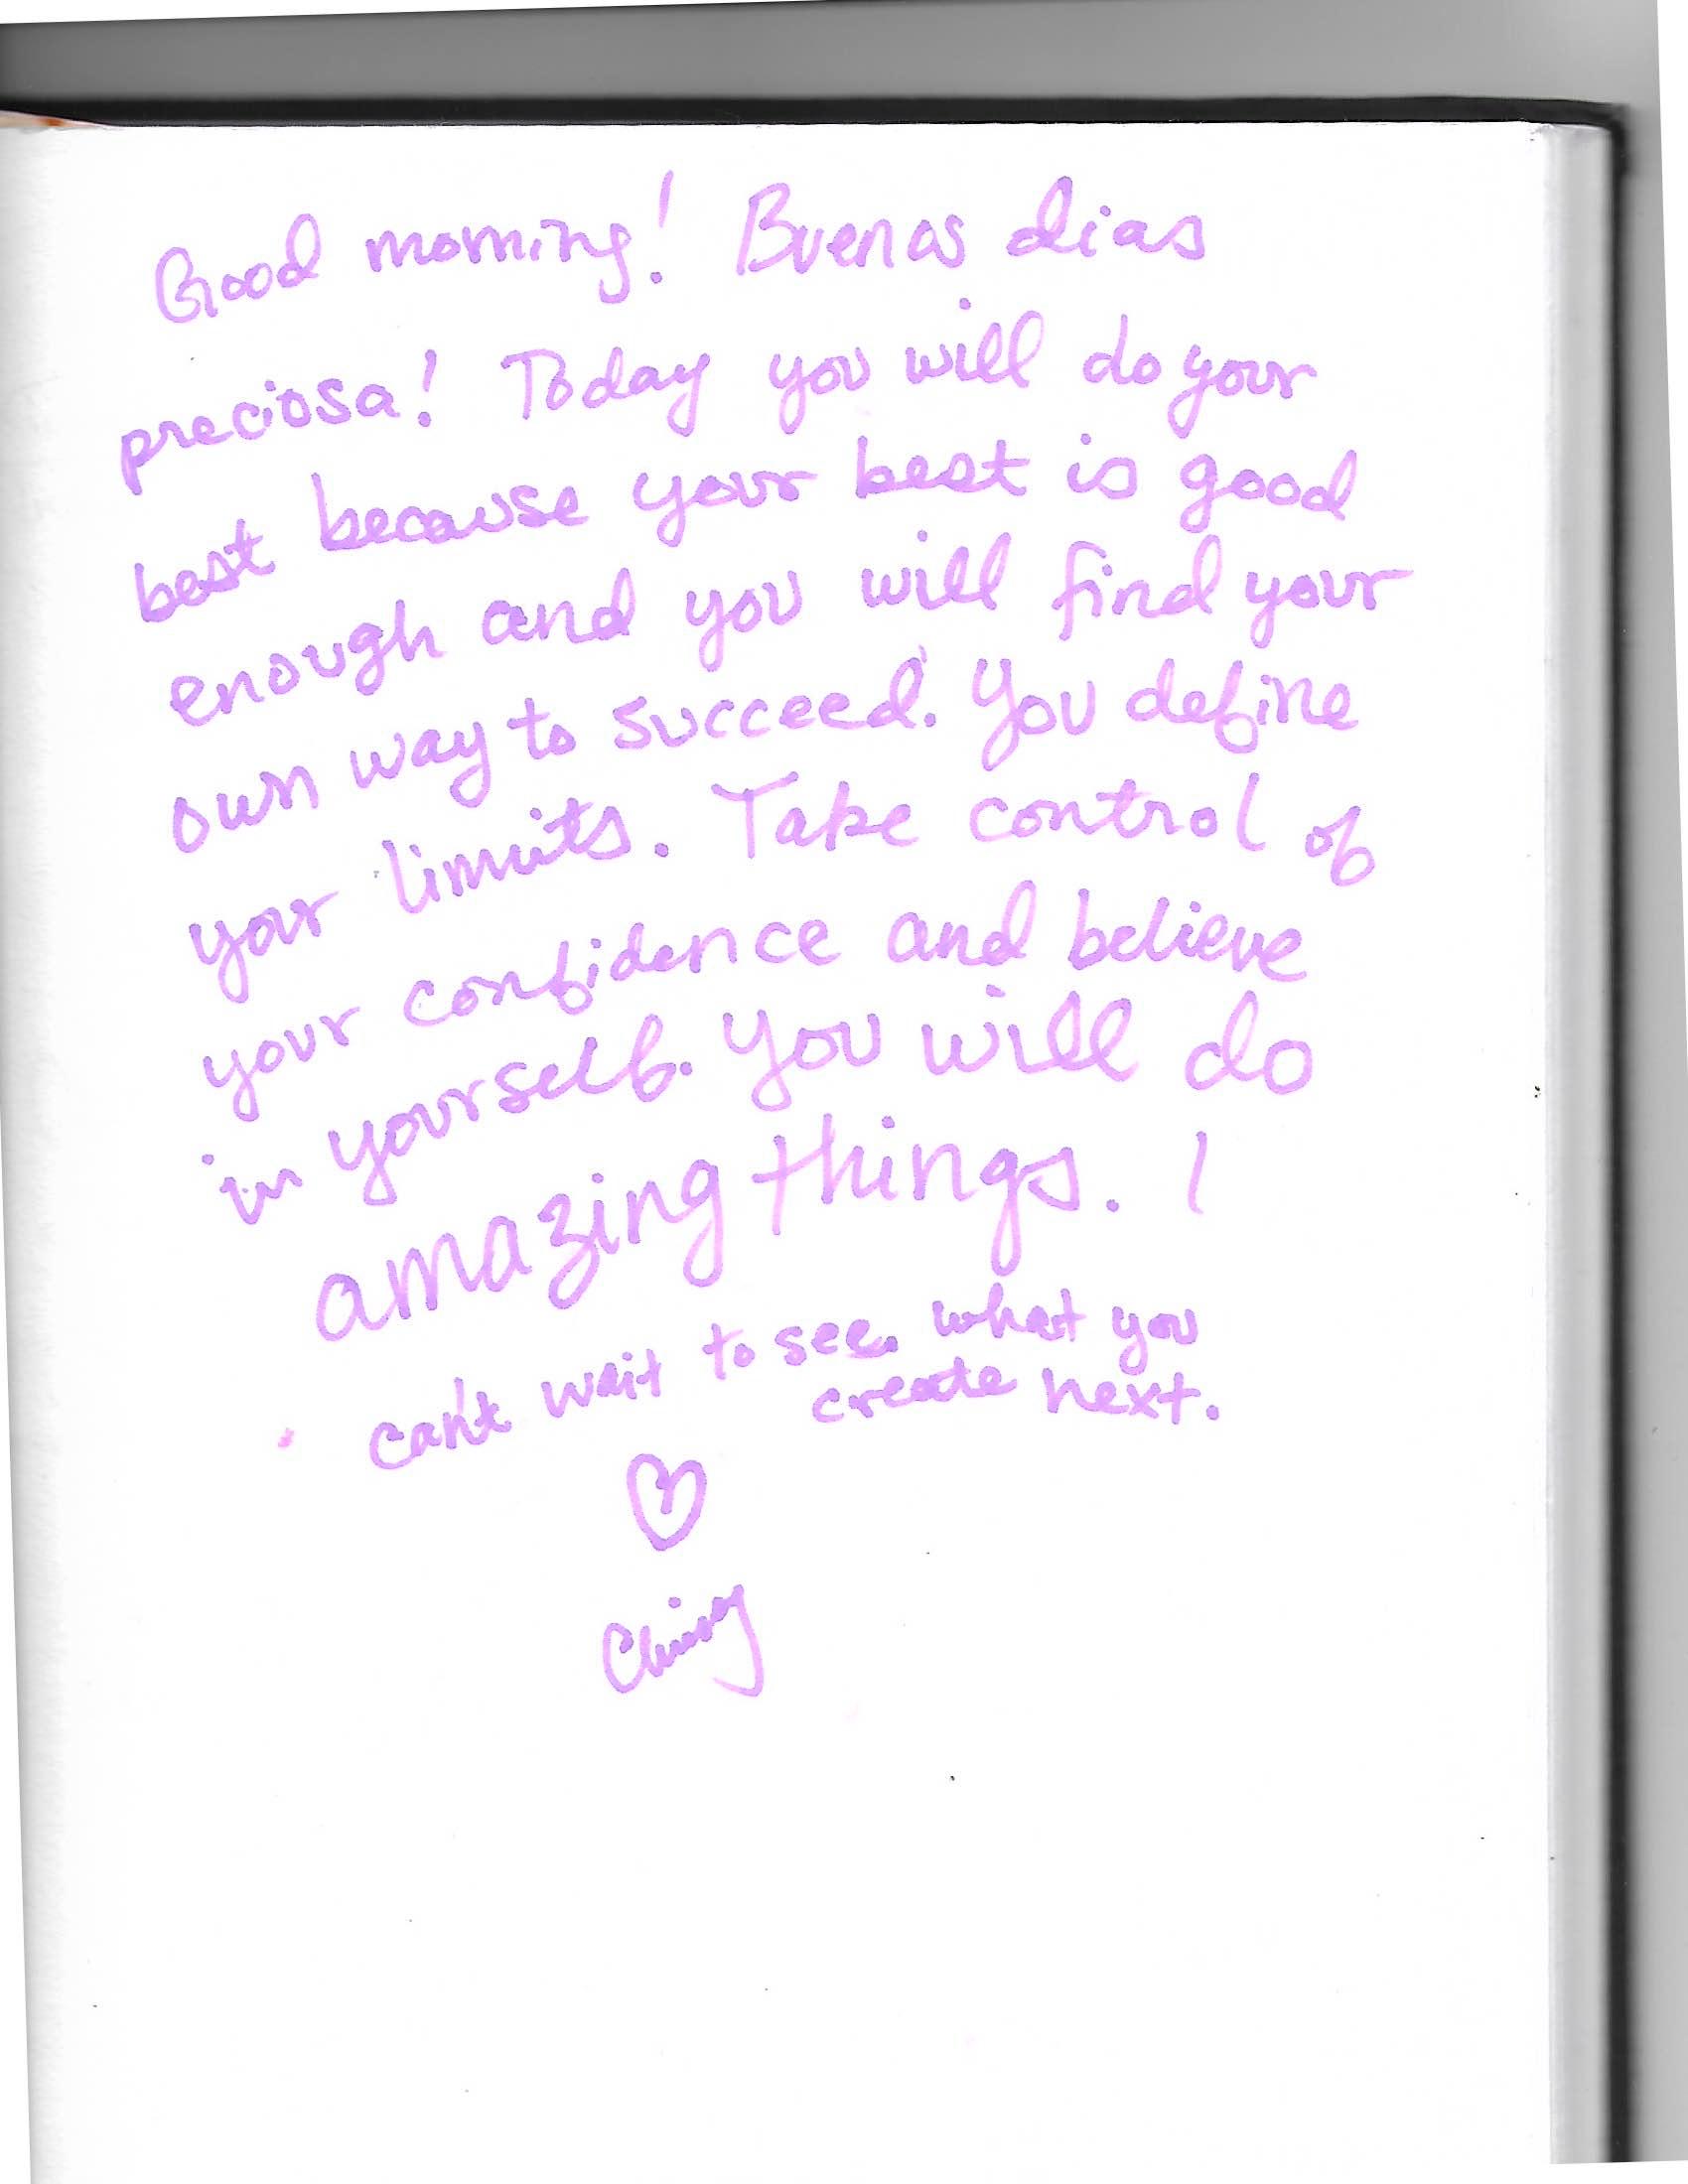 Good morning! Buenos dias
preciosa! Today you will do your
best because your best is good
enough and you will find your
own way to succeed. You define
your limits. Take control of
your confidence and believe
in yourself. You will do
amazing things. I
can't wait to see what you
create next.